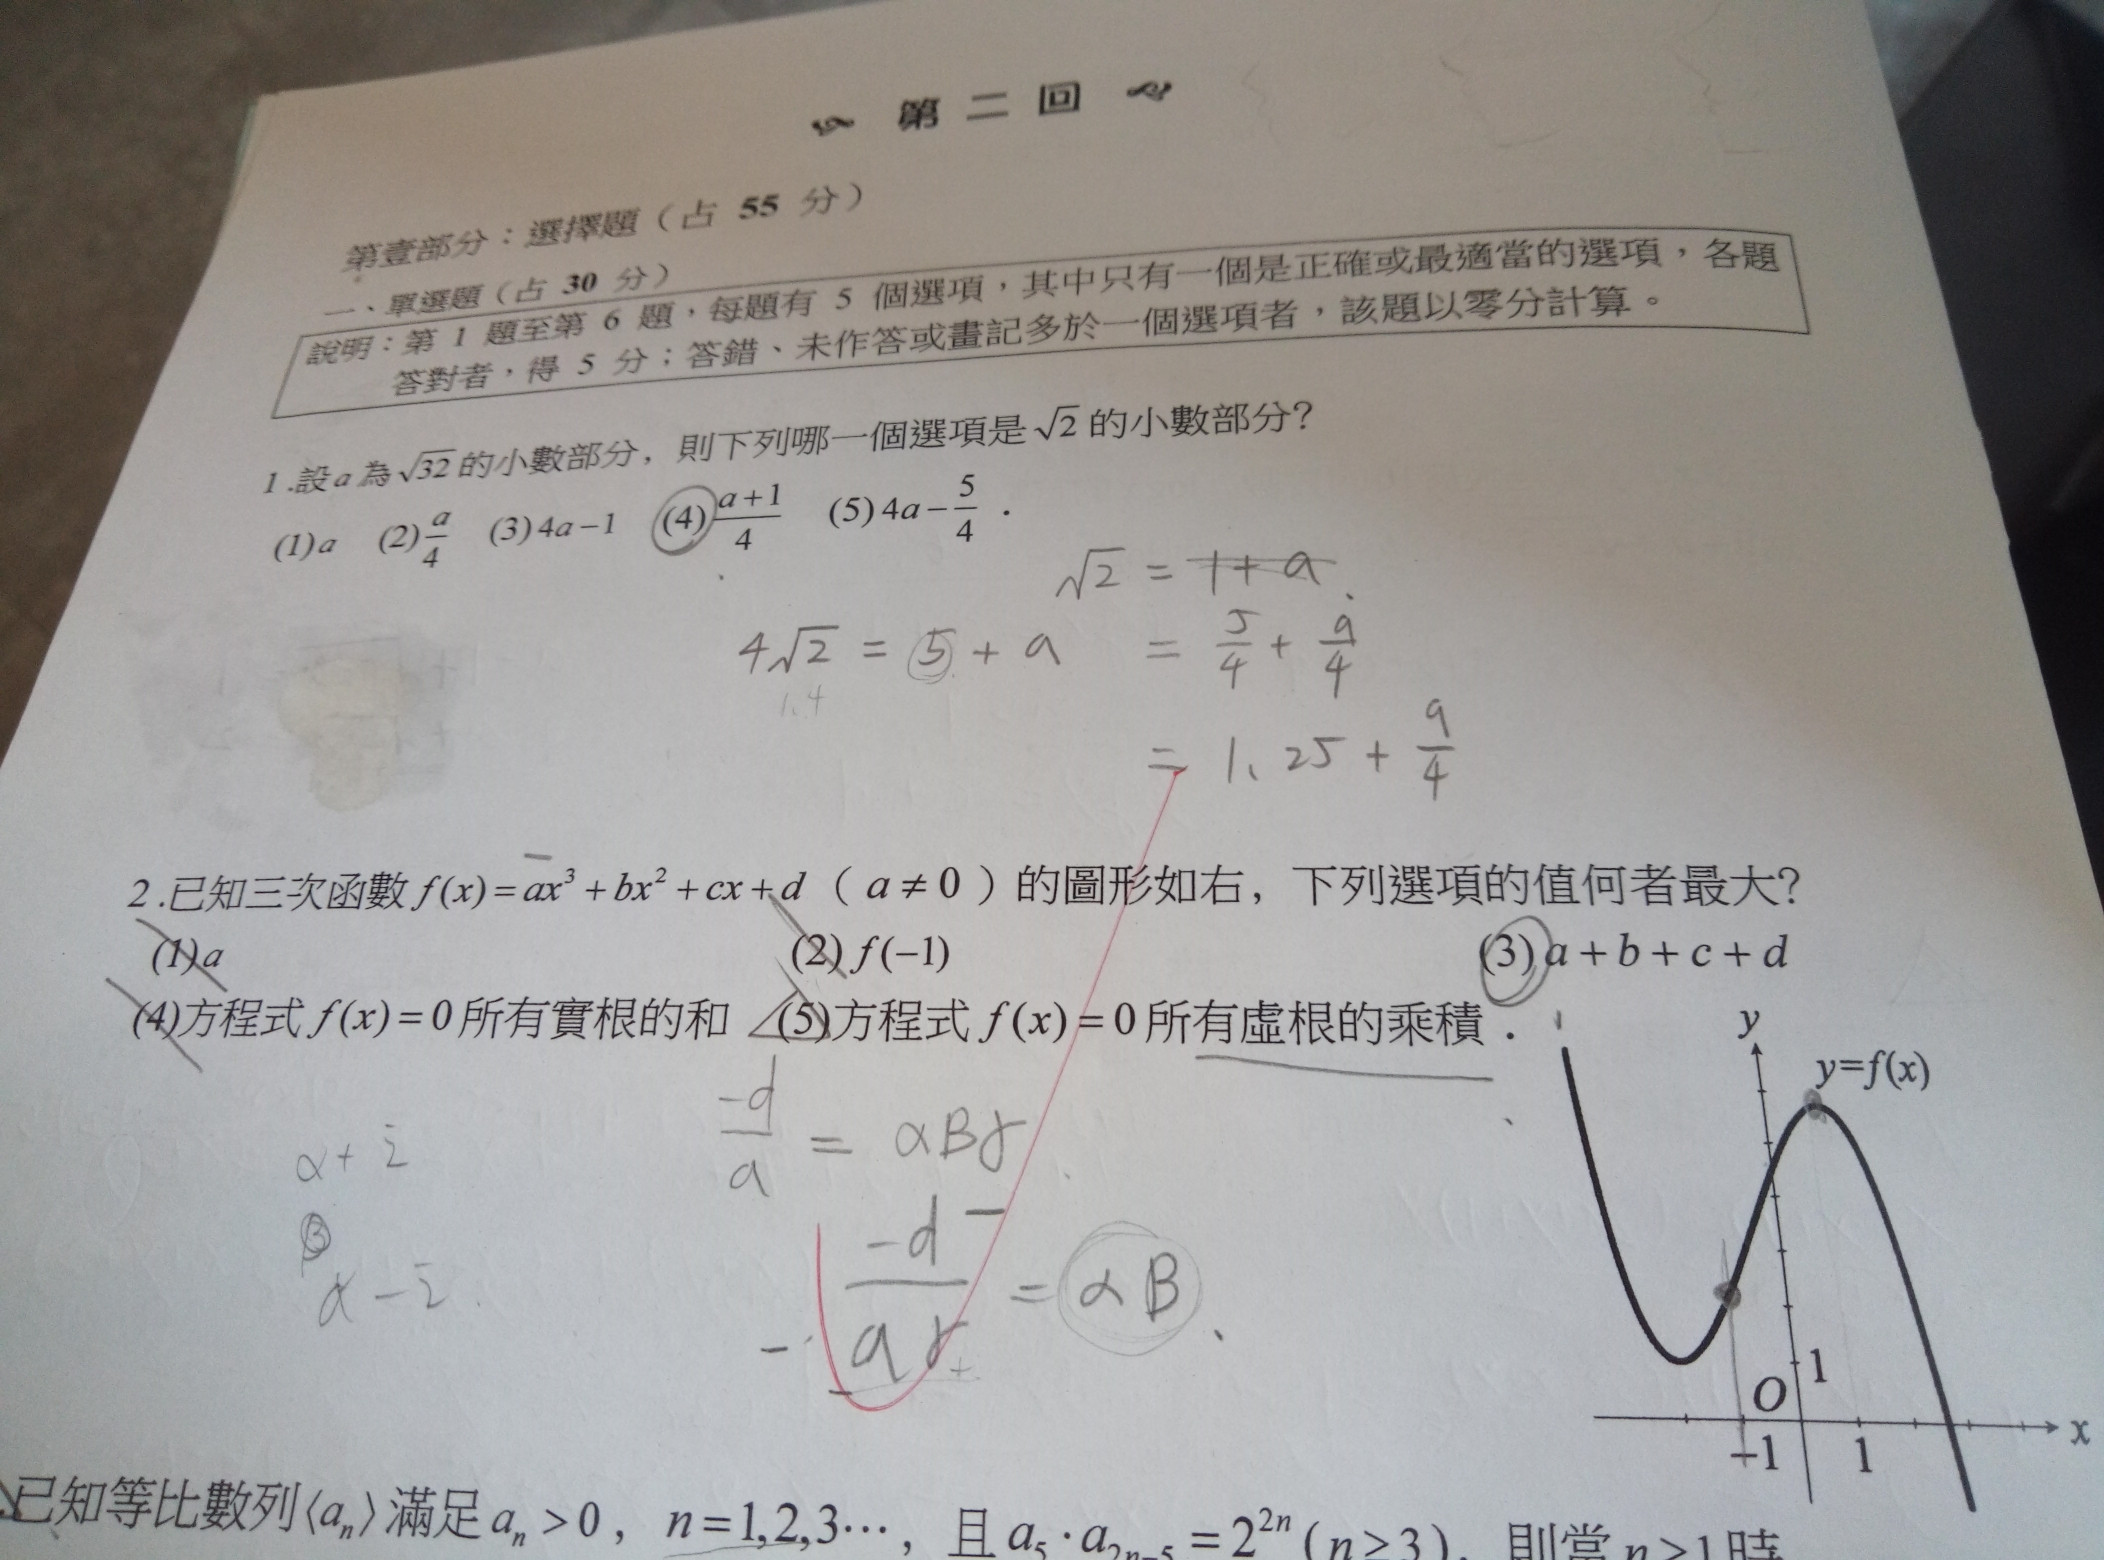 第二回
第壹部分：選擇題（占 55 分）
一、單選題（占 30 分）
說明：第 1 題至第 6 題，每題有 5 個選項，其中只有一個是正確或最適當的選項，各題
答對者，得 5 分；答錯、未作答或畫記多於一個選項者，該題以零分計算。
1.設a為√32的小數部分，則下列哪一個選項是√2的小數部分？
(1)a (2)a/4 (3)4a−1 (4)(a+1)/4 (5)4a−5/4．
√2 = 1+a
4√2 = 5 + a = 5/4 + a/4
1.4
= 1.25 + a/4
2.已知三次函數f(x)=ax³+bx²+cx+d（a≠0）的圖形如右，下列選項的值何者最大？
(1)a (2)f(−1) (3)a+b+c+d
(4)方程式f(x)=0所有實根的和 (5)方程式f(x)=0所有虛根的乘積．
y
y=f(x)
−d/a = αBγ
α+i
B
α−i
−d/aγ = αB
1
O
x
−1 1
已知等比數列⟨aₙ⟩滿足aₙ>0，n=1,2,3⋯，且a₅·a₂ₙ₋₅=2²ⁿ(n≥3)，則當n≥1時